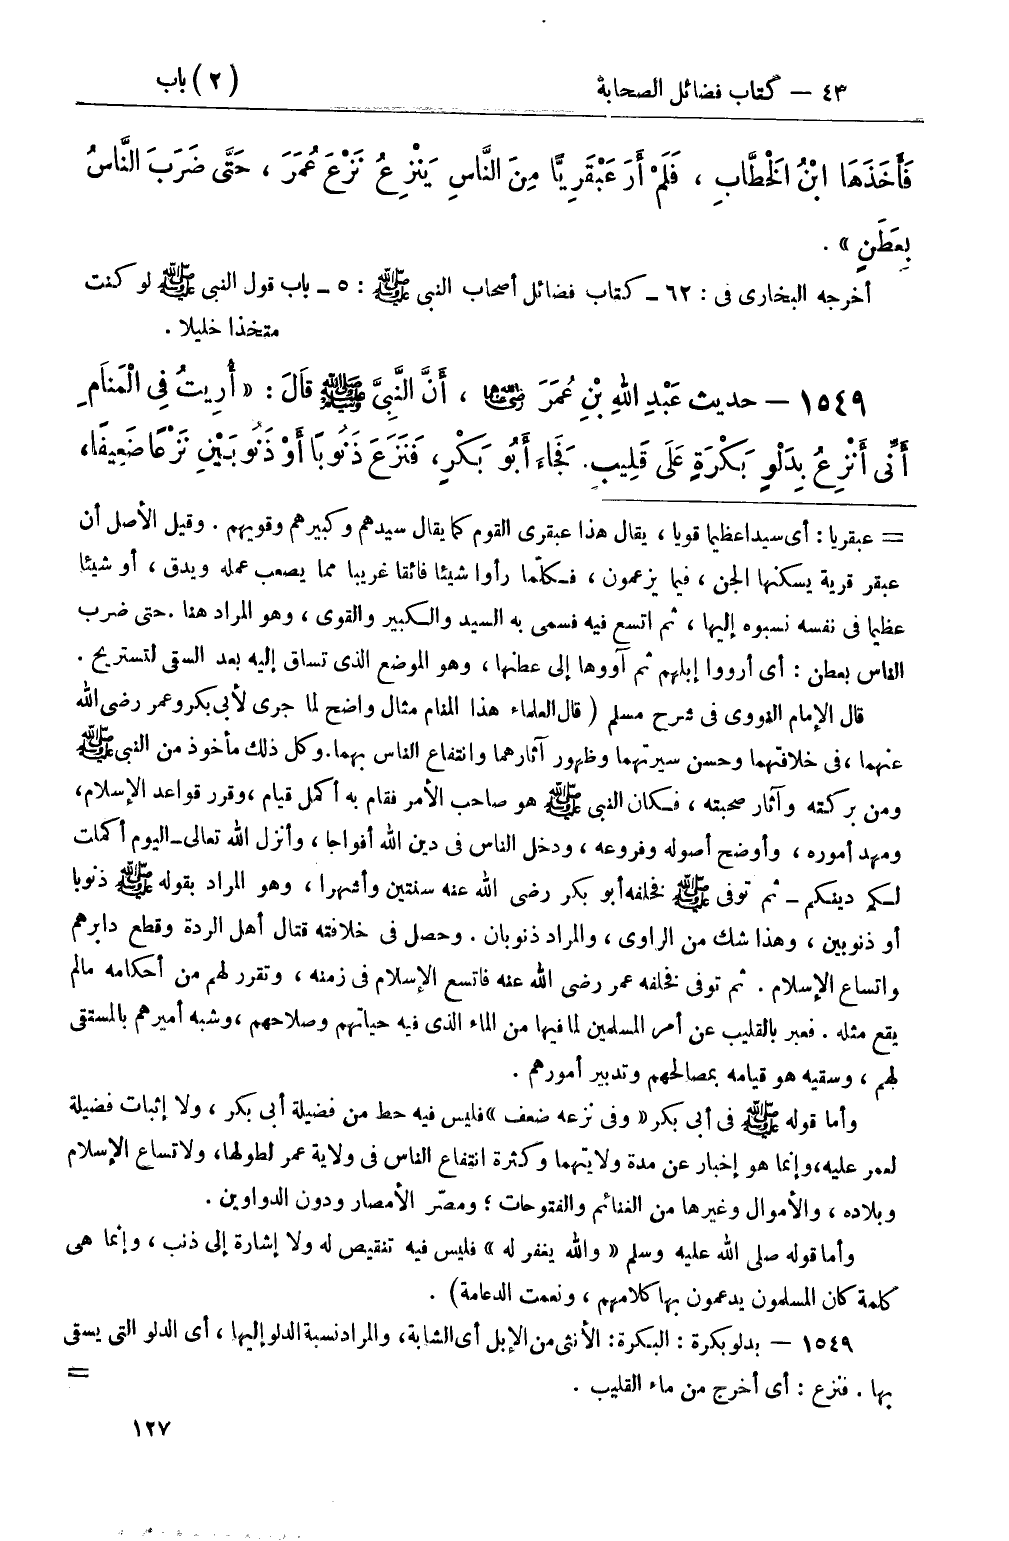 ٤٣ – كتاب فضائل الصحابة (٢) باب
فَأَخَذَهَا ابْنُ الْخَطَّابِ ، فَلَمْ أَرَ عَبْقَرِيًّا مِنَ النَّاسِ يَنْزِعُ نَزْعَ عُمَرَ ، حَتَّى ضَرَبَ النَّاسُ
بِعَطَنٍ » .
أخرجه البخارى فى : ٦٢ – كتاب فضائل أصحاب النبى ﷺ : ٥ – باب قول النبى ﷺ لو كنت
متخذا خليلا .
١٥٤٩ – حديث عَبْدِ اللهِ بْنِ عُمَرَ رضي الله عنهما ، أَنَّ النَّبِيَّ ﷺ قَالَ : « أُرِيتُ فِى الْمَنَامِ
أَنِّى أَنْزِعُ بِدَلْوِ بَكْرَةٍ عَلَى قَلِيبٍ . فَجَاءَ أَبُو بَكْرٍ ، فَنَزَعَ ذَنُوبًا أَوْ ذَنُوبَيْنِ نَزْعًا ضَعِيفًا ،
= عبقريا : أى سيدا عظيما قويا ، يقال هذا عبقرى القوم كما يقال سيدهم وكبيرهم وقويهم . وقيل الأصل أن
عبقر قرية يسكنها الجن ، فيما يزعمون ، فكلّما رأوا شيئا فائقا غريبا مما يصعب عمله ويدق ، أو شيئا
عظيما فى نفسه نسبوه إليها ، ثم اتسع فيه فسمى به السيد والكبير والقوى ، وهو المراد هنا . حتى ضرب
الناس بعطن : أى أرووا إبلهم ثم آووها إلى عطنها ، وهو الموضع الذى تساق إليه بعد السقى لتستريح .
قال الإمام النووى فى شرح مسلم ( قال العلماء هذا المنام مثال واضح لما جرى لأبى بكر وعمر رضى الله
عنهما ، فى خلافتهما وحسن سيرتهما وظهور آثارهما وانتفاع الناس بهما . وكل ذلك مأخوذ من النبى ﷺ
ومن بركته وآثار صحبته ، فكان النبى ﷺ هو صاحب الأمر فقام به أكمل قيام ، وقرر قواعد الإسلام ،
ومهد أموره ، وأوضح أصوله وفروعه ، ودخل الناس فى دين الله أفواجا ، وأنزل الله تعالى – اليوم أكملت
لكم دينكم – ثم توفى ﷺ فخلفه أبو بكر رضى الله عنه سنتين وأشهرا ، وهو المراد بقوله ﷺ ذنوبا
أو ذنوبين ، وهذا شك من الراوى ، والمراد ذنوبان . وحصل فى خلافته قتال أهل الردة وقطع دابرهم
واتساع الإسلام . ثم توفى فخلفه عمر رضى الله عنه فاتسع الإسلام فى زمنه ، وتقرر لهم من أحكامه مالم
يقع مثله . فعبر بالقليب عن أمر المسلمين لما فيها من الماء الذى فيه حياتهم وصلاحهم ، وشبه أميرهم بالمستقى
لهم ، وسقيه هو قيامه بمصالحهم وتدبير أمورهم .
وأما قوله ﷺ فى أبى بكر « وفى نزعه ضعف » فليس فيه حط من فضيلة أبى بكر ، ولا إثبات فضيلة
لعمر عليه ، وإنما هو إخبار عن مدة ولايتهما وكثرة انتفاع الناس فى ولاية عمر لطولها ، ولاتساع الإسلام
وبلاده ، والأموال وغيرها من الغنائم والفتوحات ؛ ومصّر الأمصار ودون الدواوين .
وأما قوله صلى الله عليه وسلم « والله يغفر له » فليس فيه تنقيص له ولا إشارة إلى ذنب ، وإنما هى
كلمة كان المسلمون يدعمون بها كلامهم ، ونعمت الدعامة ) .
١٥٤٩ – بدلو بكرة : البكرة : الأنثى من الإبل أى الشابة ، والمراد نسبة الدلو إليها ، أى الدلو التى يسقى
بها . فنزع : أى أخرج من ماء القليب . =
١٢٧